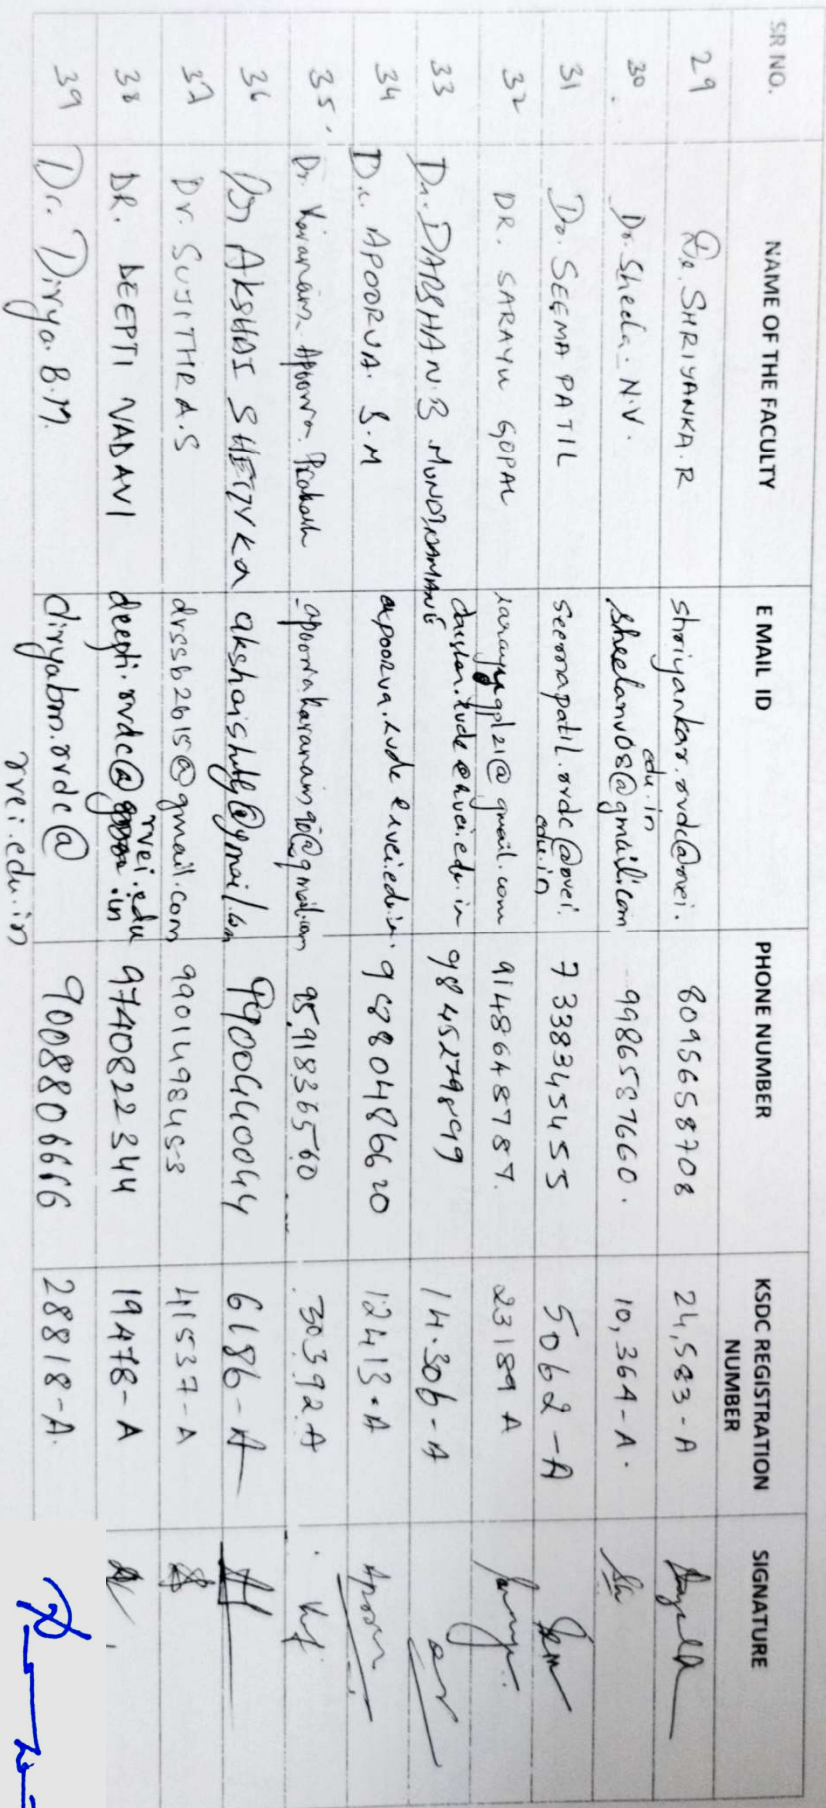 SR NO. NAME OF THE FACULTY E MAIL ID PHONE NUMBER KSDC REGISTRATION NUMBER SIGNATURE
29 Dr. SHRIYANKA. R shriyankar.rvdc@rvei. edu.in 8095658708 24,583-A
30. Dr. Sheela. N.V. sheelanv08@gmail.com 9986587660. 10,364-A.
31 Dr. SEEMA PATIL seemapatil.rvdc@rvei. edu.in 7338345455 5062-A
32 DR. SARAYU GOPAL @gmail.com 9148648787. 23189 A
33 Dr. DARSHAN. B 9845279899 14306-A
34 Dr. APOORVA. S.M 9880486620 12413-A
35. Dr. Karanam Apoorva Prakash apoorvakaranam90@gmail.com 9591836560 30392.A
36 Dr AKSHAI SHETTY K R akshaishetty@gmail.com 9900440044 6186-A
37 Dr. SUJITHRA.S drssb2615@gmail.com 9901498453 41537-A
38 DR. DEEPTI VADAVI deepti.rvdc@rvei.edu.in 9740822344 19478-A
39 Dr. Divya. B.M. divyabm.rvdc@rvei.edu.in 9008806666 28818-A.